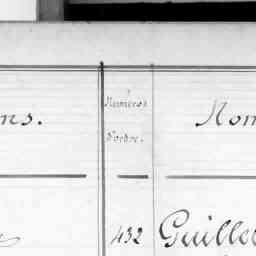 ns. Numéros Nom
d'ordre.
432 Guille